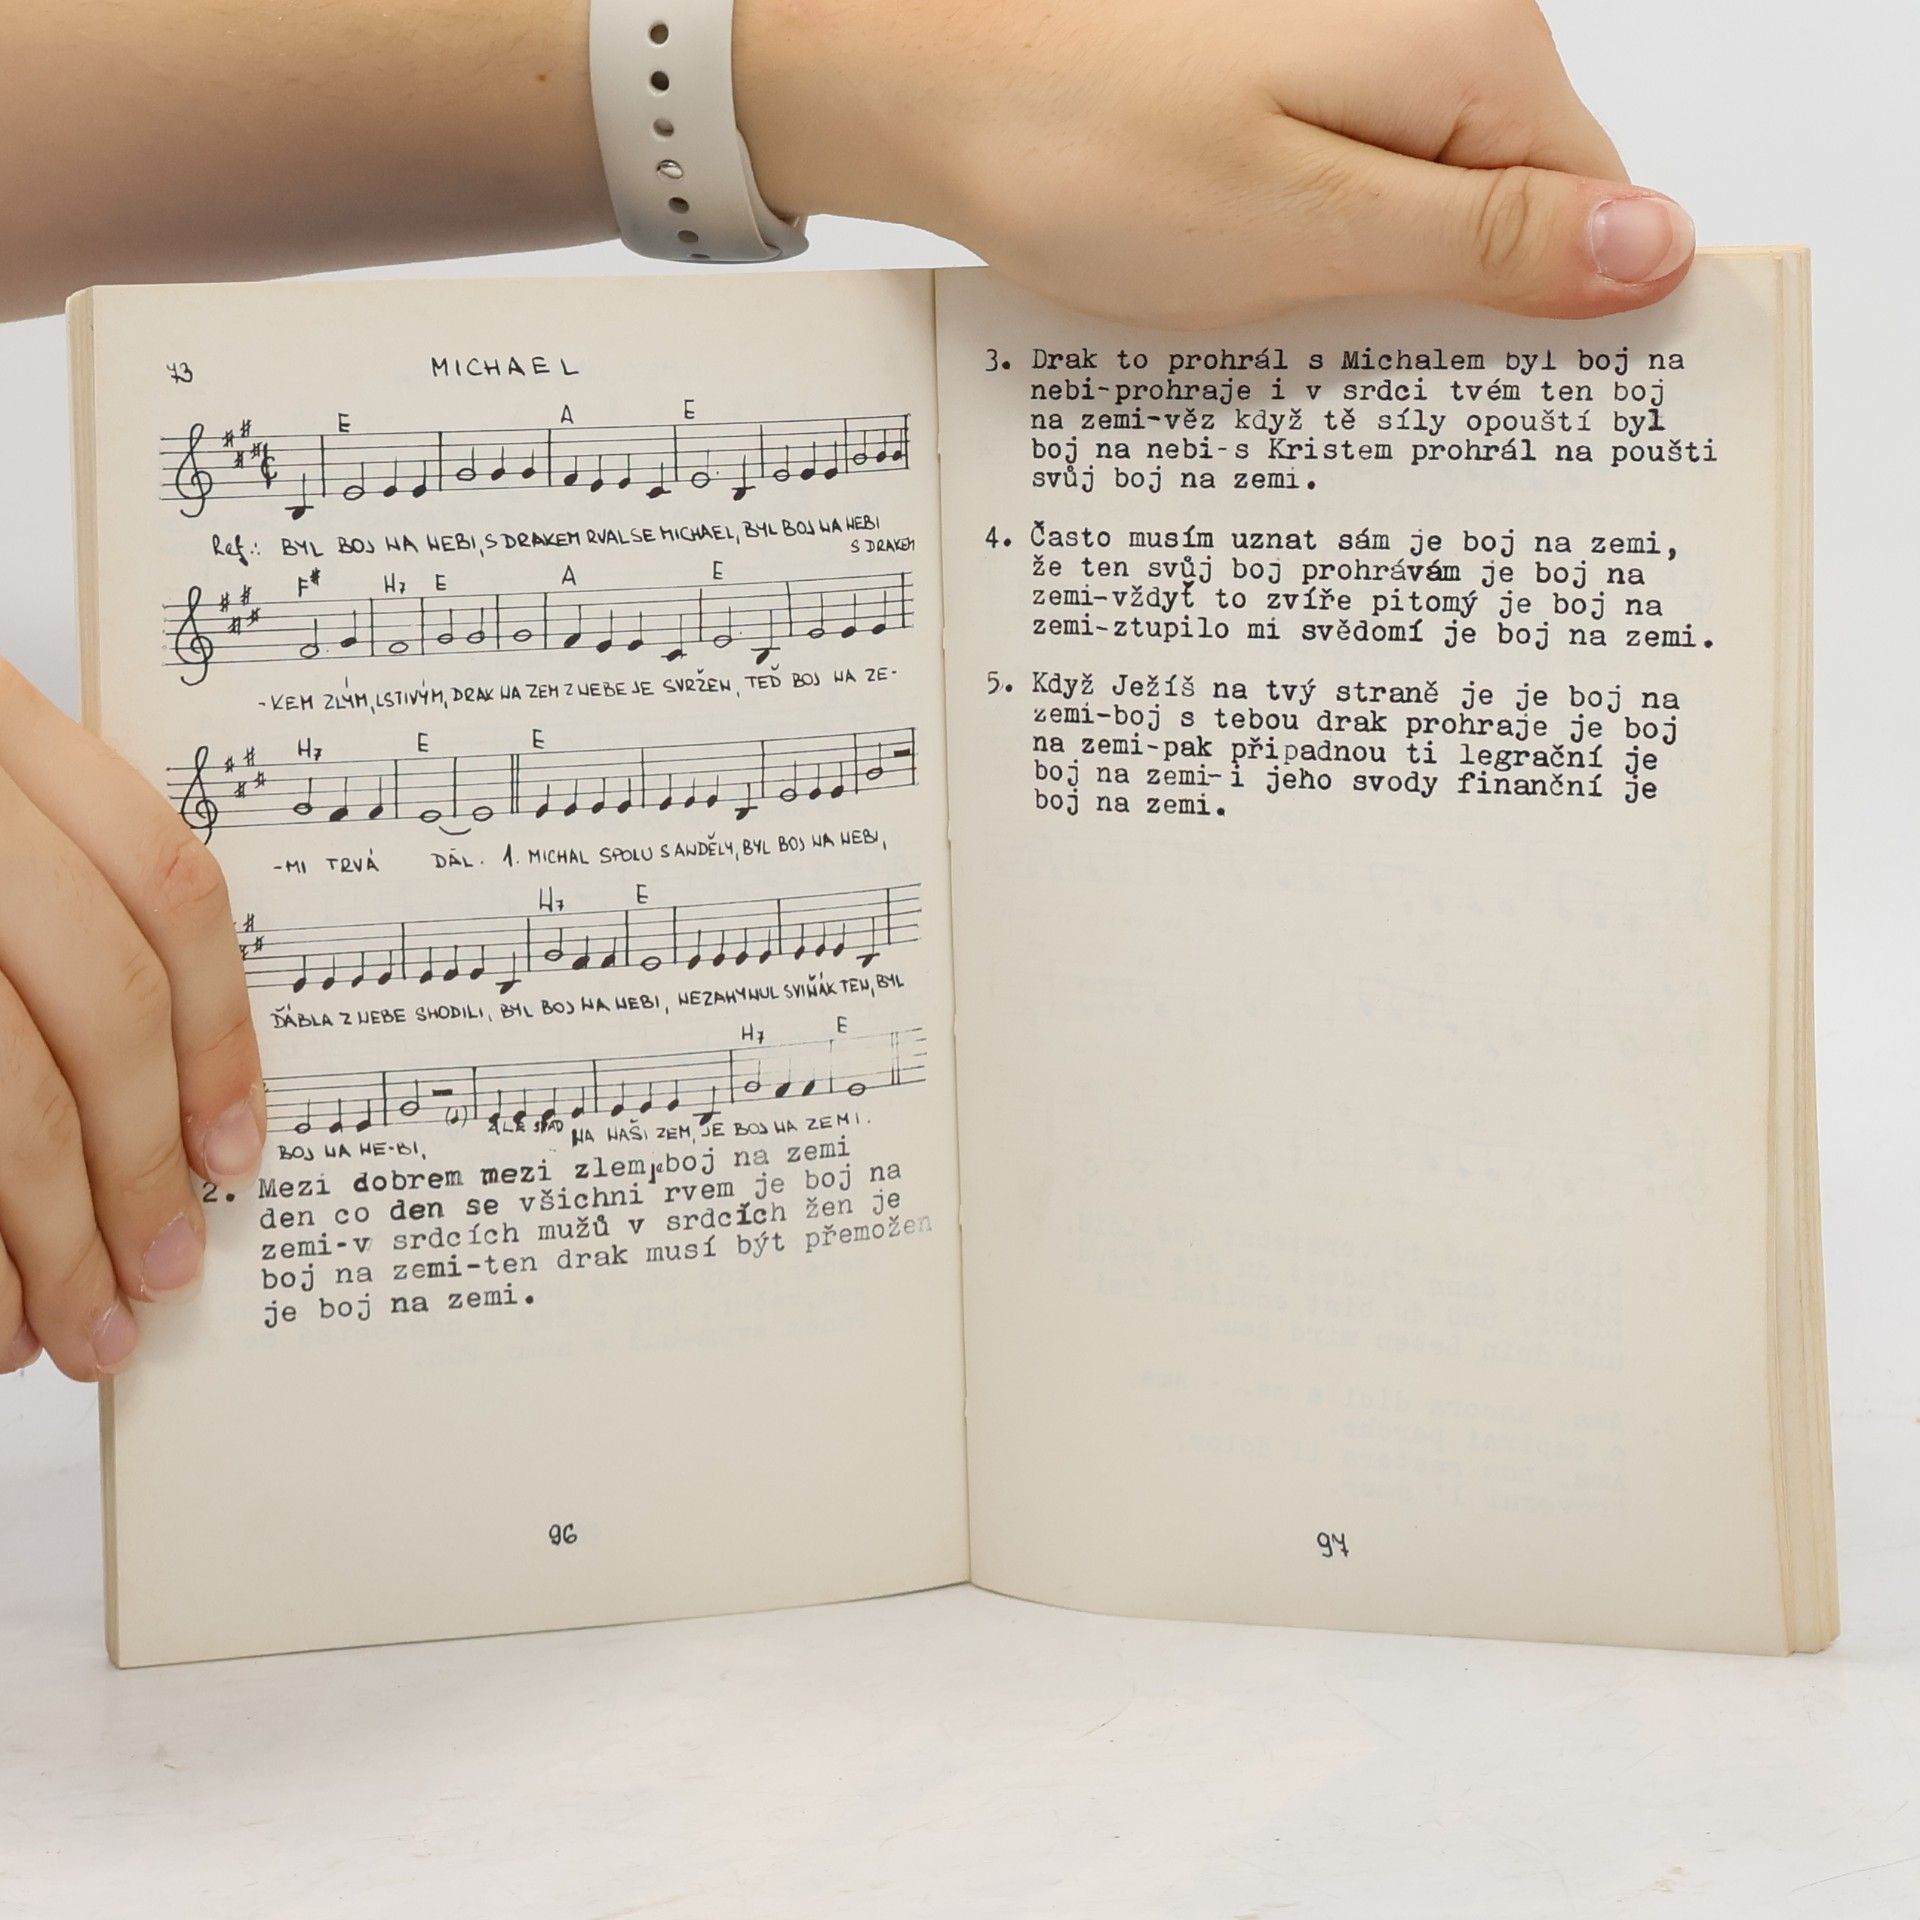 73
MICHAEL
E A E
Ref.: BYL BOJ NA NEBI, S DRAKEM RVAL SE MICHAEL, BYL BOJ NA NEBI
S DRAKEM
F# H7 E A E
-KEM ZLÝM, LSTIVÝM, DRAK NA ZEM Z NEBE JE SVRŽEN, TEĎ BOJ NA ZE-
H7 E E
-MI TRVÁ DÁL. 1. MICHAL SPOLU S ANDĚLY, BYL BOJ NA NEBI,
H7 E
ĎÁBLA Z NEBE SHODILI, BYL BOJ NA NEBI, NEZAHYNUL SVIŇÁK TEN, BYL
H7 E
BOJ NA NE-BI, ALE SPAD NA NAŠI ZEM, JE BOJ NA ZEMI.
2. Mezi dobrem mezi zlem je boj na zemi
den co den se všichni rvem je boj na
zemi-v srdcích mužů v srdcích žen je
boj na zemi-ten drak musí být přemožen
je boj na zemi.
96
3. Drak to prohrál s Michalem byl boj na
nebi-prohraje i v srdci tvém ten boj
na zemi-věz když tě síly opouští byl
boj na nebi-s Kristem prohrál na poušti
svůj boj na zemi.
4. Často musím uznat sám je boj na zemi,
že ten svůj boj prohrávám je boj na
zemi-vždyť to zvíře pitomý je boj na
zemi-ztupilo mi svědomí je boj na zemi.
5. Když Ježíš na tvý straně je je boj na
zemi-boj s tebou drak prohraje je boj
na zemi-pak připadnou ti legrační je
boj na zemi-i jeho svody finanční je
boj na zemi.
97